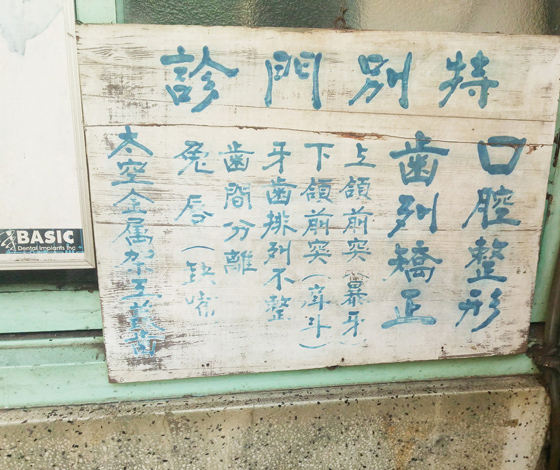 特別門診
口腔整形
齒列矯正
上頷前突(暴牙)
下頷前突(戽斗)
牙齒排列不整
齒間分離
兔唇(缺嘴)
太空金属加工義齒
BASIC
Dental Implants Inc